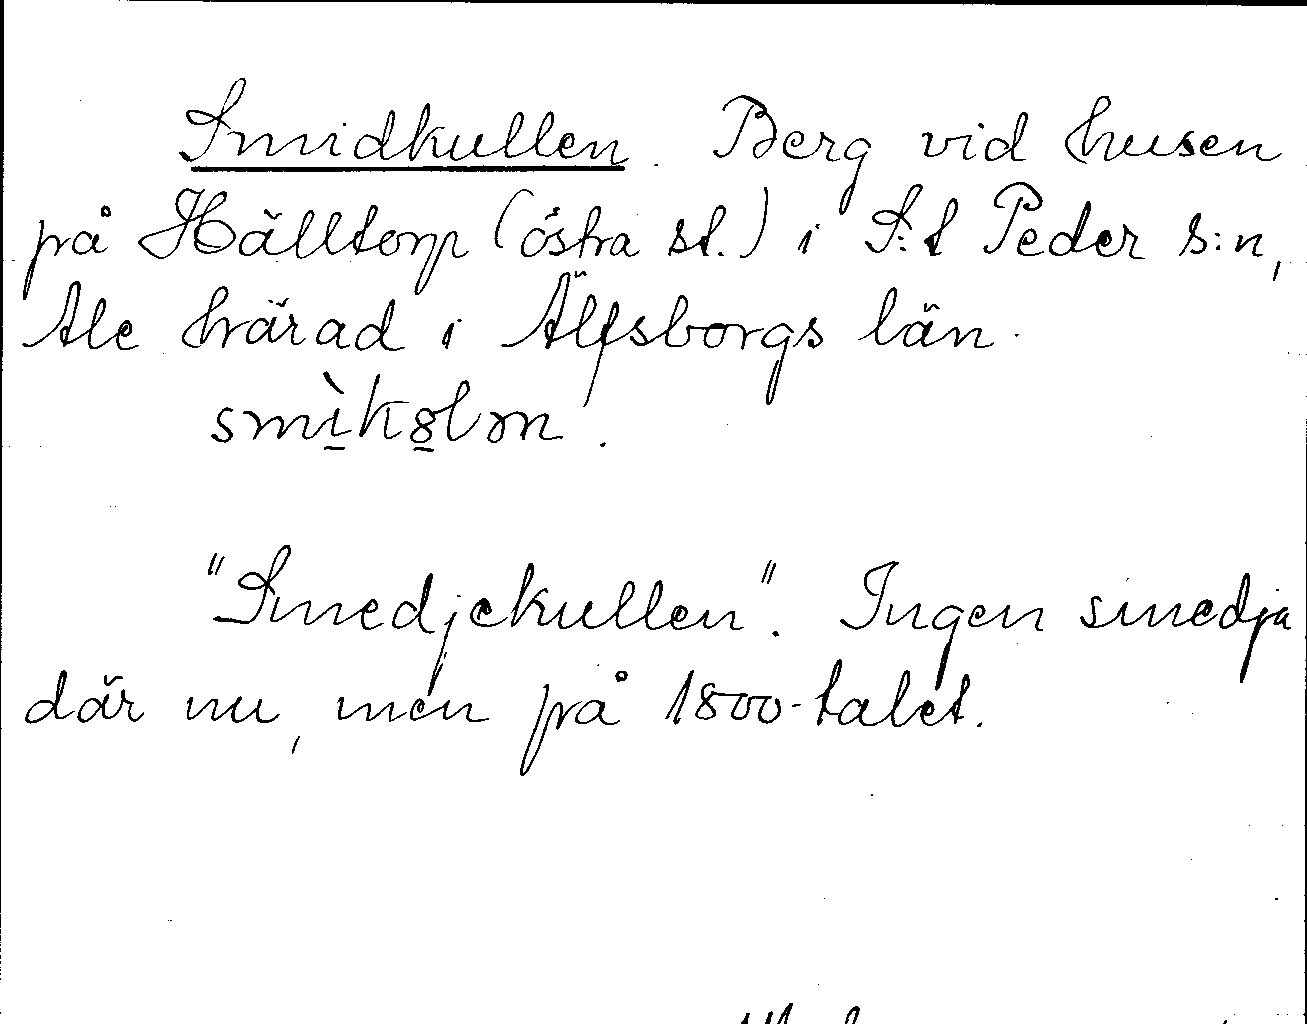 Smidkullen. Berg vid husen
på Hälltorp (östra st.) i S:t Peder s:n,
Ale härad i Älfsborgs län.
smìk8lən.
"Smedjekullen". Ingen smedja
där nu, men på 1800-talet.